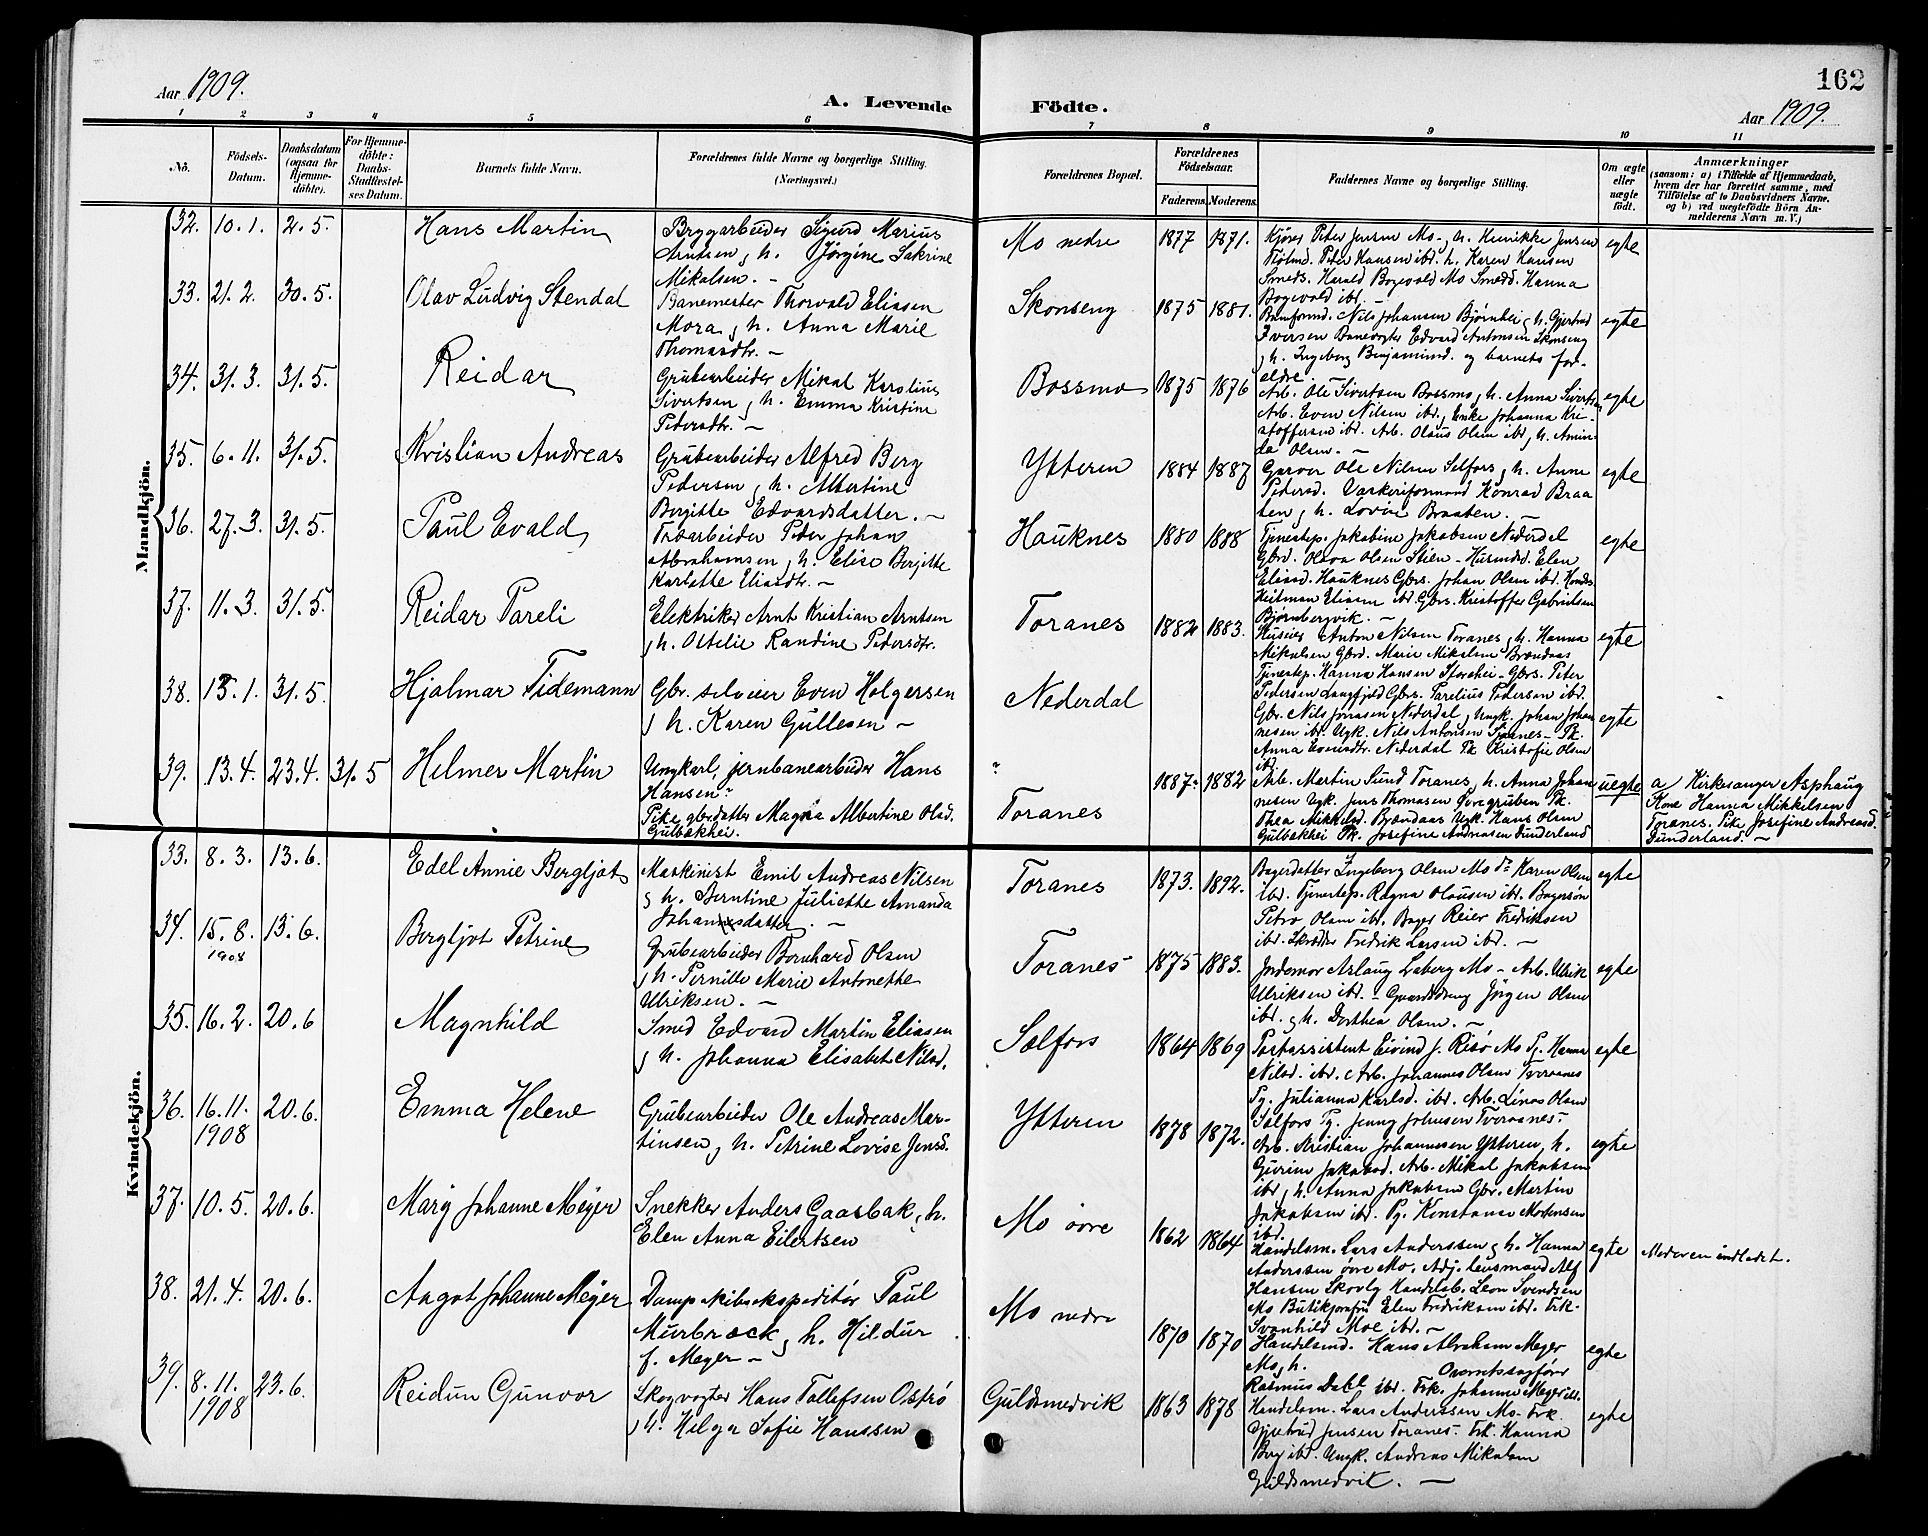 162
Aar 1909.
A. Levende Födte.
Aar 1909.
1 2 3 4 5 6 7 8 9 10 11
Nô.
Födsels-
Datum.
Daabsdatum
(ogsaa for
Hjemme-
döbte).
For Hjemme-
döbte:
Daabs-
Stadfæstel-
ses Datum.
Barnets fulde Navn.
Forældrenes fulde Navne og borgerlige Stilling.
(Næringsvei.)
Forældrenes Bopæl.
Forældrenes
Födselsaar.
Faderens. Moderens.
Faddernes Navne og borgerlige Stilling.
Om ægte
eller
uægte
födt.
Anmærkninger
(saasom: a) i Tilfælde af Hjemmedaab,
hvem der har forrettet samme, med
Tilföielse af to Daabsvidners Navne.
og b) ved uægtefödte Börn An-
melderens Navn m. V.)
Mandkjön.
32. 10. 1. 2. 5. Hans Martin
Bryggarbeider Sigurd Marius
Arntsen, h. Jörgine Sakrine
Mikalsen. -
Mo nedre 1877 1871.
Peter Jensen Mo, h. Henrikke Jensen
Peter Hansen ibd. h. Karen Hansen
Smeds. Harald Bogevold Mo Smedd. Hanna
Bogevold ibd.
egte
33. 21. 2. 30. 5. Olav Ludvig Stendal
Banemester Thorvald Eliasen
Mora, h. Anna Marie
Thomasdtr. -
Skonseng 1875 1881.
Baneformd. Nils Johansen Bjørnhei, h. Gjertrud
Iversen Banevogter Edvard Antonsen Skonseng
, h. Ingeborg Benjamind. og barnets for-
eldre.
egte
34. 31. 3. 31. 5. Reidar
Grubearbeider Mikal Karolius
Sivertsen, h. Emma Kristine
Pedersdtr. -
Bossmo 1875 1876
Arb. Ole Sivertsen Bossmo, h. Anna Sivertsen
Arb. Even Nilsen ibd, Enke Johanna Kri-
stoffersen ibd. Arb. Olaus Olsen ibd, h. Amin-
da Olsen. -
egte
35. 6. 11. 31. 5. Kristian Andreas
Grubearbeider Alfred Berg
Pedersen, h. Albertine
Bergitte Edvardsdatter. -
Ytteren 1884 1887
Garver Ole Nilsen Selfors, h. Anne
Pedersd. Vaskeriformand Konrad Braa
ten, h. Lovise Braaten. -
egte
36. 27. 3. 31. 5. Paul Evald
Peder Johan
Abrahamsen, h. Elise Bergitte
Karlotte Eliasdtr. -
Hauknes 1880 1888
Tjenestep. Jakobine Jakobsen Nederdal
Gbrd. Olava Olsen Stien - Elen
Eliasd. Hauknes Gbrs. Johan Olsen ibd.
Heilman Eliasen ibd Gbrs. Kristoffer Gabrielsen
Bjørnbærvik. -
egte
37. 11. 3. 31. 5. Reidar Pareli
Elektriker Arnt Kristian Arntsen
, h. Ottelie Randine Pedersdtr.
Toranes 1882 1883.
Huseier Anton Nilsen Toranes, h. Hanna
Mikalsen Gbrd. Marie Mikalsen Brændaas
Tjenestep. Hanna Hansen Storehei - Gbrs. Peter
Pedersen Langfjeld Gbrs. Parelius Pedersen ibd.
egte
38. 13. 1. 31. 5. Hjalmar Tidemann
Gbr. selveier Even Holgersen
, h. Karen Gullesen -
Nederdal
Gbr. Nils Jonasen Nederdal, Ungk. Johan Johan
nesen ibd. Ugk. Nils Antonsen Toranes - Pk.
Anna Evensdtr. Nederdal Pk Kristofie Olsen
ibd.
egte
39. 13. 4. 23. 4. 31. 5 Helmer Martin
Ungkarl, jernbanearbeider Hans
Hansen
Pike gbrdatter Magna Albertine Olsd.
Gulbakhei.
"
Toranes
1887 1882
Arb. Martin Lund Toranes, h. Anna Johan
nesen Ugk. Jens Thomasen Pk.
Thea Mikkelsd. Brændaas Ugk. Hans Olsen
Gulbakhei Pk. Josefine Andreasen Dunderland
uegte
a Kirkesanger Asphaug
Kone Hanna Mikkelsen
Toranes. Pike Josefine Andreasd.
Dunderland. -
Kvindekjön.
33. 8. 3. 13. 6. Edel Annie Bergljot
Maskinist Emil Andreas Nilsen
, h. Berntine Juliette Amanda
Johannesdatter. -
Toranes 1873. 1892.
Bagerdatter Ingeborg Olsen Mo do Karen Olsen
ibd. Tjenestep. Ragna Olausen ibd. Bagersøn
Petro Olsen ibd. Bager Reier Fredriksen
ibd. Skrædder Fredrik Larsen ibd. -
egte
34. 15. 8. 1908 13. 6. Bergljot Petrine
Grubearbeider Bernhard Olsen
, h. Pernille Marie Antonette
Ulriksen. -
Toranes 1875 1883.
Jordemor Aslaug Laberg Mo - Arb. Ulrik
Ulriksen ibd. - Gaardsdreng Jörgen Olsen
ibd. , h. Dorthea Olsen. -
egte
35. 16. 2. 20. 6 Magnhild
Smed Edvard Martin Eliasen
, h. Johanna Elisabet Nilsd.
Selfors 1864 1869
Postassistent Eivind J. Risø Mo Pg. Hanna
Nilsd. ibd. Arb. Johannes Olsen Tveraanes
Pg. Julianna Karlsd. ibd. Arb. Linos Olsen
Selfors Pg. Jenny Johnsen Tveraanes -
egte
36. 16. 11. 1908 20. 6. Emma Helene
Grubearbeider Ole Andreas Mar-
tinsen, h. Petrine Lovise Jensd.
Ytteren 1878 1872.
Arb. Kristian Johannesen Ytteren, h.
Gurine Jakobsd. Arb. Mikal Jakobsen
ibd, h. Anna Jakobsen Gbr. Martin
Jakobsen ibd. Pg. Konstanse Mortensen
ibd.
egte
37. 10. 5. 20. 6. Mary Johanne Meyer
Snekker Anders Gaasbak, h.
Elen Anna Eilertsen
Mo övre 1862 1864
Handelsm. Lars Anderssen, h. Hanna
Anderssen övre Mo. Adj. Lensmand Alf
Hansen Skovly Handelsb. Leon Svendsen
Mo Elen Fredriksen ibd. Frk.
Svanhild Moe ibd. -
egte Moderen indledet.
38. 21. 4. 20. 6. Aagot Johanne Meyer
Dampskibsekspeditör Paul
Murbræck, h. Hildur
f. Meyer -
Mo nedre 1870 1870
Handelsmd. Hans Abraham Meyer
Mo, h. Overretssagfører
Rasmus Dahl ibd. Frk. Johanne Meyer ibd.
egte
39. 8. 11. 1908 23. 6. Reidun Gunvor
Skogvogter Hans Tollefsen Osfrö
, h. Helga Sofie Hanssen
Guldsmedvik 1863 1878
Handelsm. Lars Anderssen Mo. Frk.
Gjertrud Jensen Toranes - Frk. Hanna
Berg ibd. Ungk. Andreas Mikalsen
Guldsmedvik. -
egte